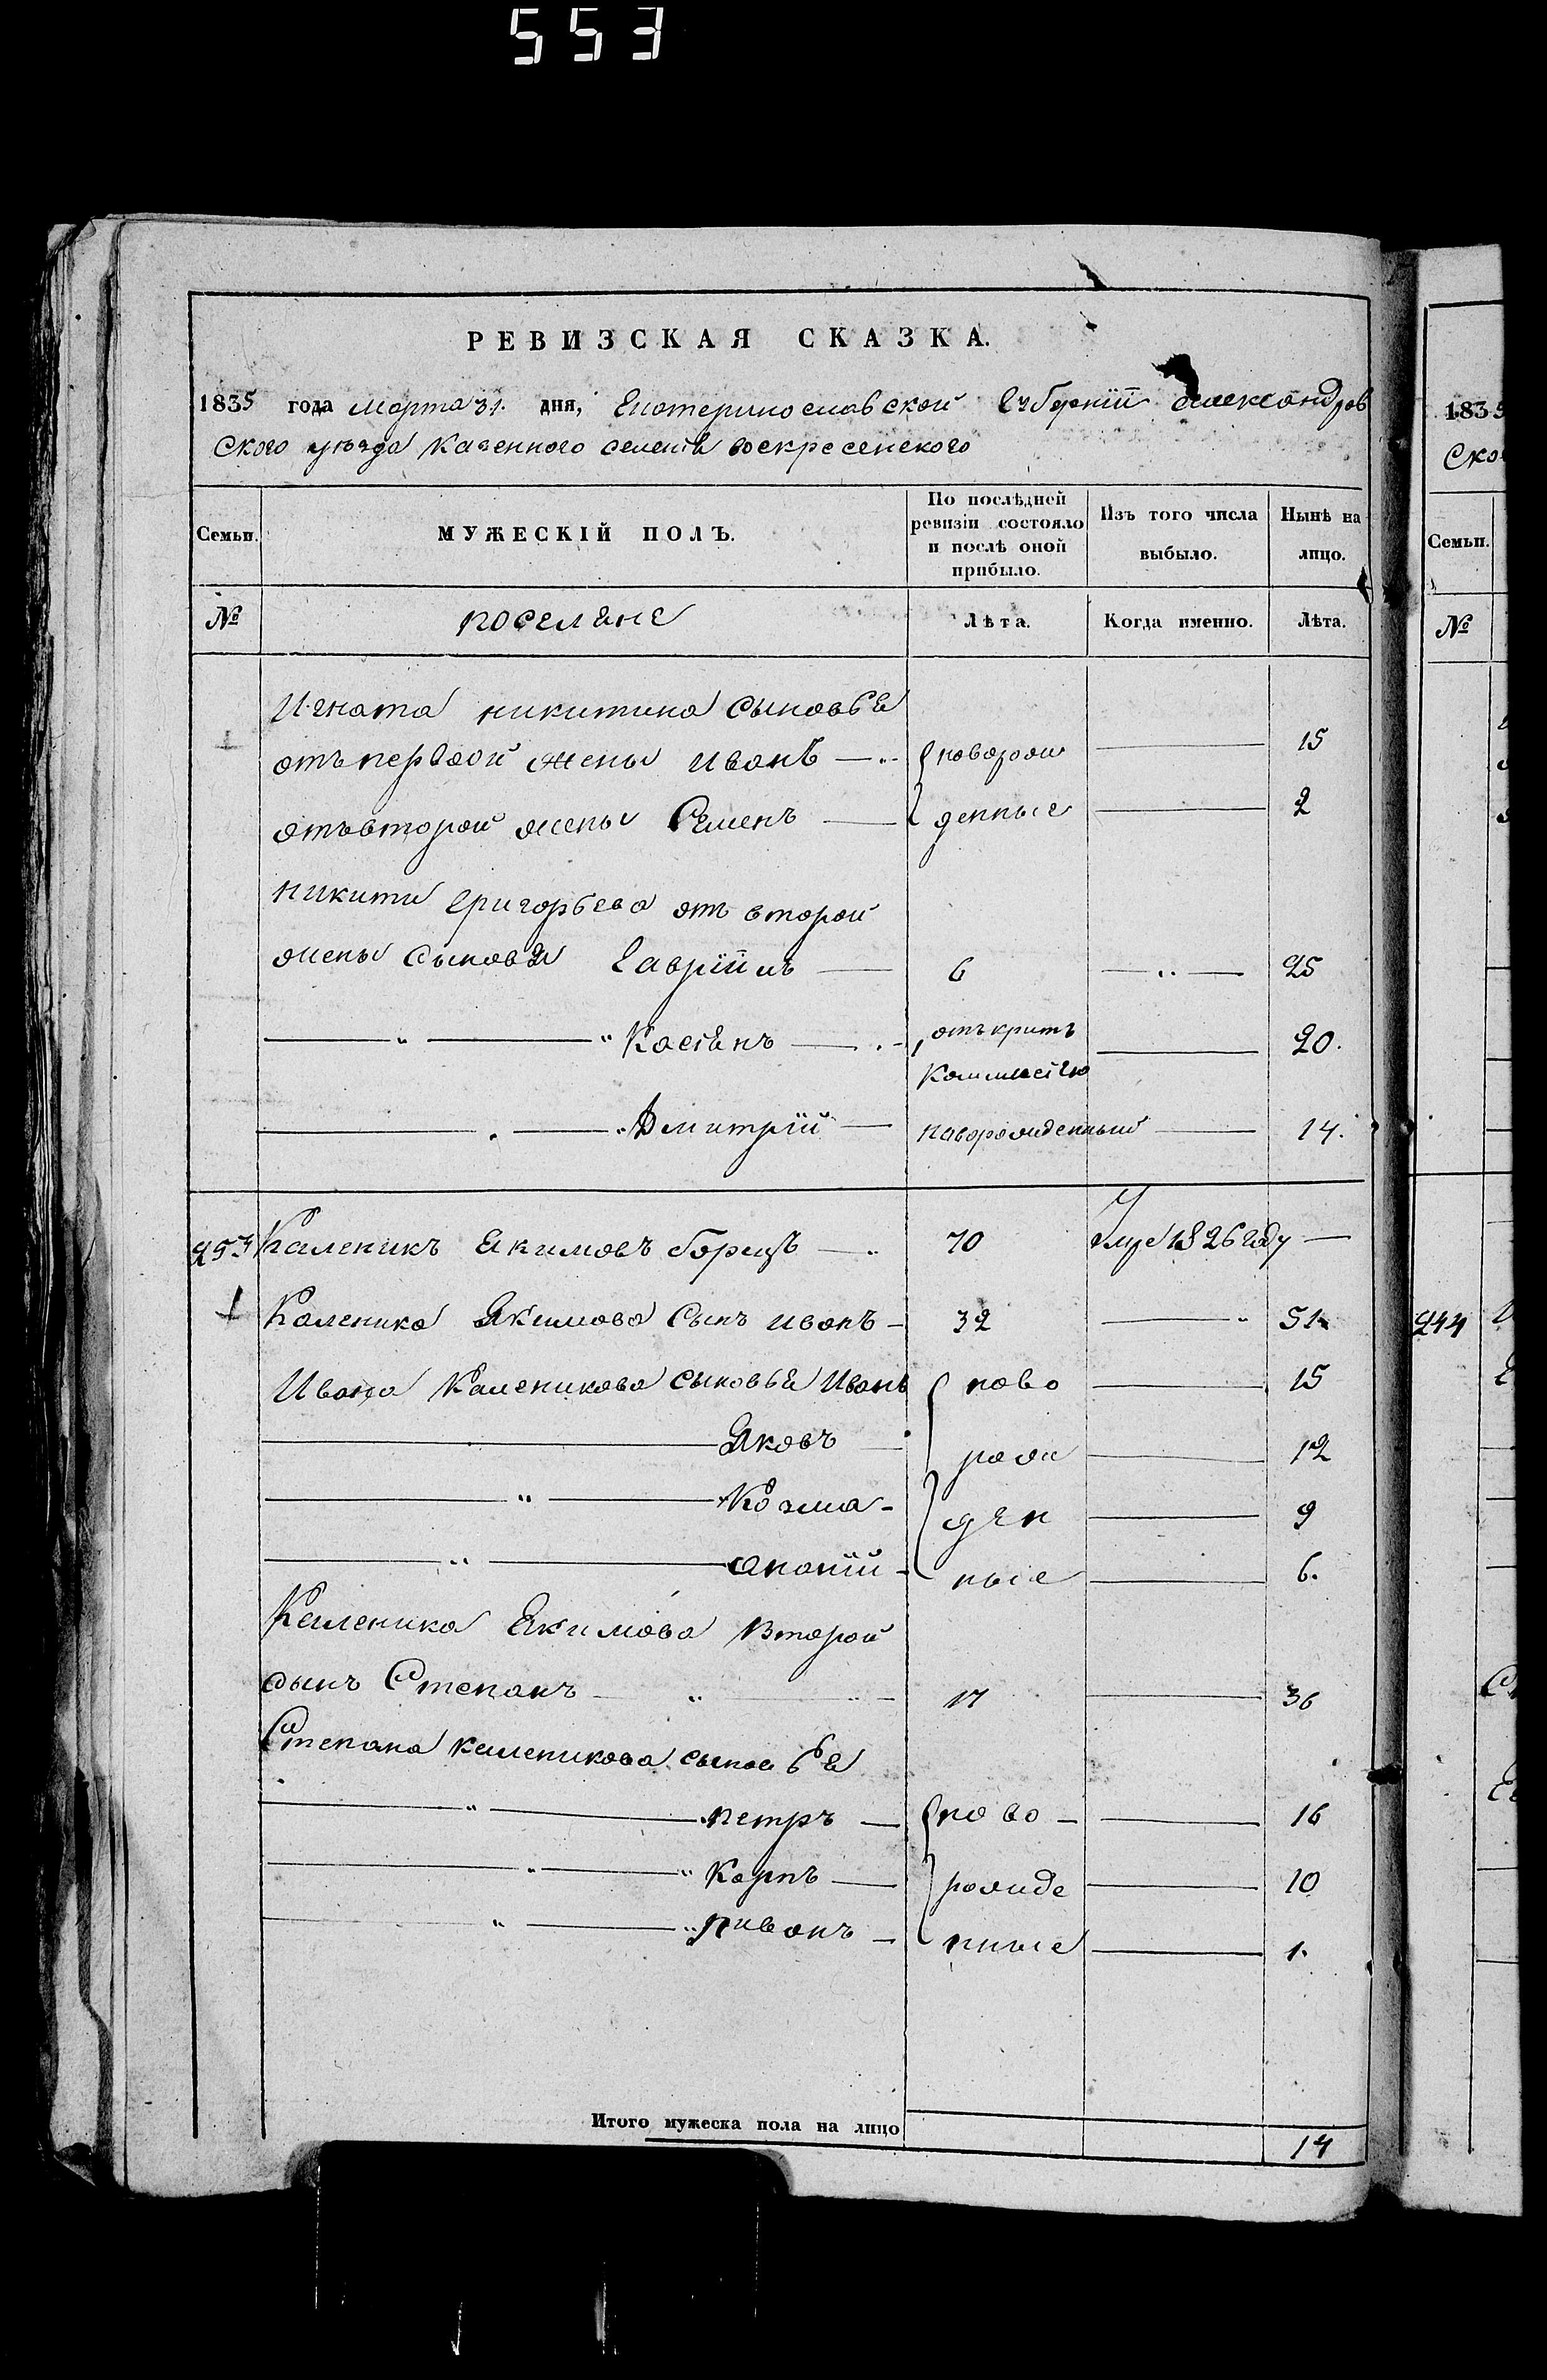 553
РЕВИЗСКАЯ СКАЗКА.
1835 года марта 31. дня, Екатеринославской Губерніи Александров
ского уезда Казенного селенія воскресенского
Семьи. МУЖЕСКІЙ ПОЛЪ. По послѣдней ревизіи состояло и послѣ оной прибыло. Изъ того числа выбыло. Нынѣ на лицо.
№ поселяне Лѣта. Когда именно. Лѣта.
Игната никитина сыновья
отъ первой жены иванъ новорож 15
отъ второй жены Семенъ денные 2
никити григорьева отъ второй
жены сыновья Гавріилъ 6 25
Касіянъ отъкритъ 20.
Дмитрій наворожденный 14.
Каленикъ Якимовъ борецъ 70 1826 году
Каленика Якимова Сынъ иванъ 32 51
Ивана Каленикова сыновья Иванъ ново 15
Яковъ рож 12
Козма ден 9
ананій ные 6.
Каленика Якимова второй
сынъ Степанъ 17 36
Степана каленикова сыновья
петръ ново 16
Карпъ рожде 10
пиванъ нные 1.
Итого мужеска пола на лицо 14
1835
Ско
Семьи.
№
244